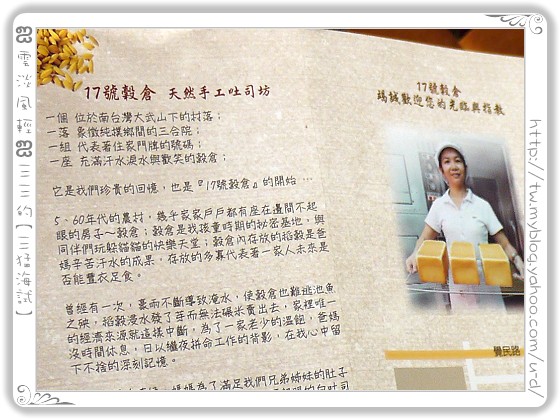 17號穀倉 天然手工吐司坊
一個 位於南台灣大武山下的村落；
一落 象徵純樸鄉間的三合院；
一組 代表著住家門牌的號碼；
一座 充滿汗水淚水與歡笑的穀倉；
它是我們珍貴的回憶，也是『17號穀倉』的開始 …
5、60年代的農村，幾乎家家戶戶都有座在邊間不起
眼的房子～穀倉；穀倉是我孩童時期的秘密基地，與
同伴們玩躲貓貓的快樂天堂；穀倉內存放的稻穀是爸
媽辛苦汗水的成果，存放的多寡代表著一家人未來是
否能豐衣足食。
曾經有一次，豪雨不斷導致淹水，使穀倉也難逃池魚
之殃，稻穀浸水發了芽而無法碾米賣出去，家裡唯一
的經濟來源就這樣中斷，為了一家老少的溫飽，爸媽
沒時間休息，日以繼夜拼命工作的背影，在我心中留
下不捨的深刻記憶。
媽媽為了滿足我們兄弟姊妹的肚子
17號穀倉
竭誠歡迎您的光臨與指教
覺民路
雲淡風輕
三三三的【三猛海試】
http://tw.myblog.yahoo.com/u-d/